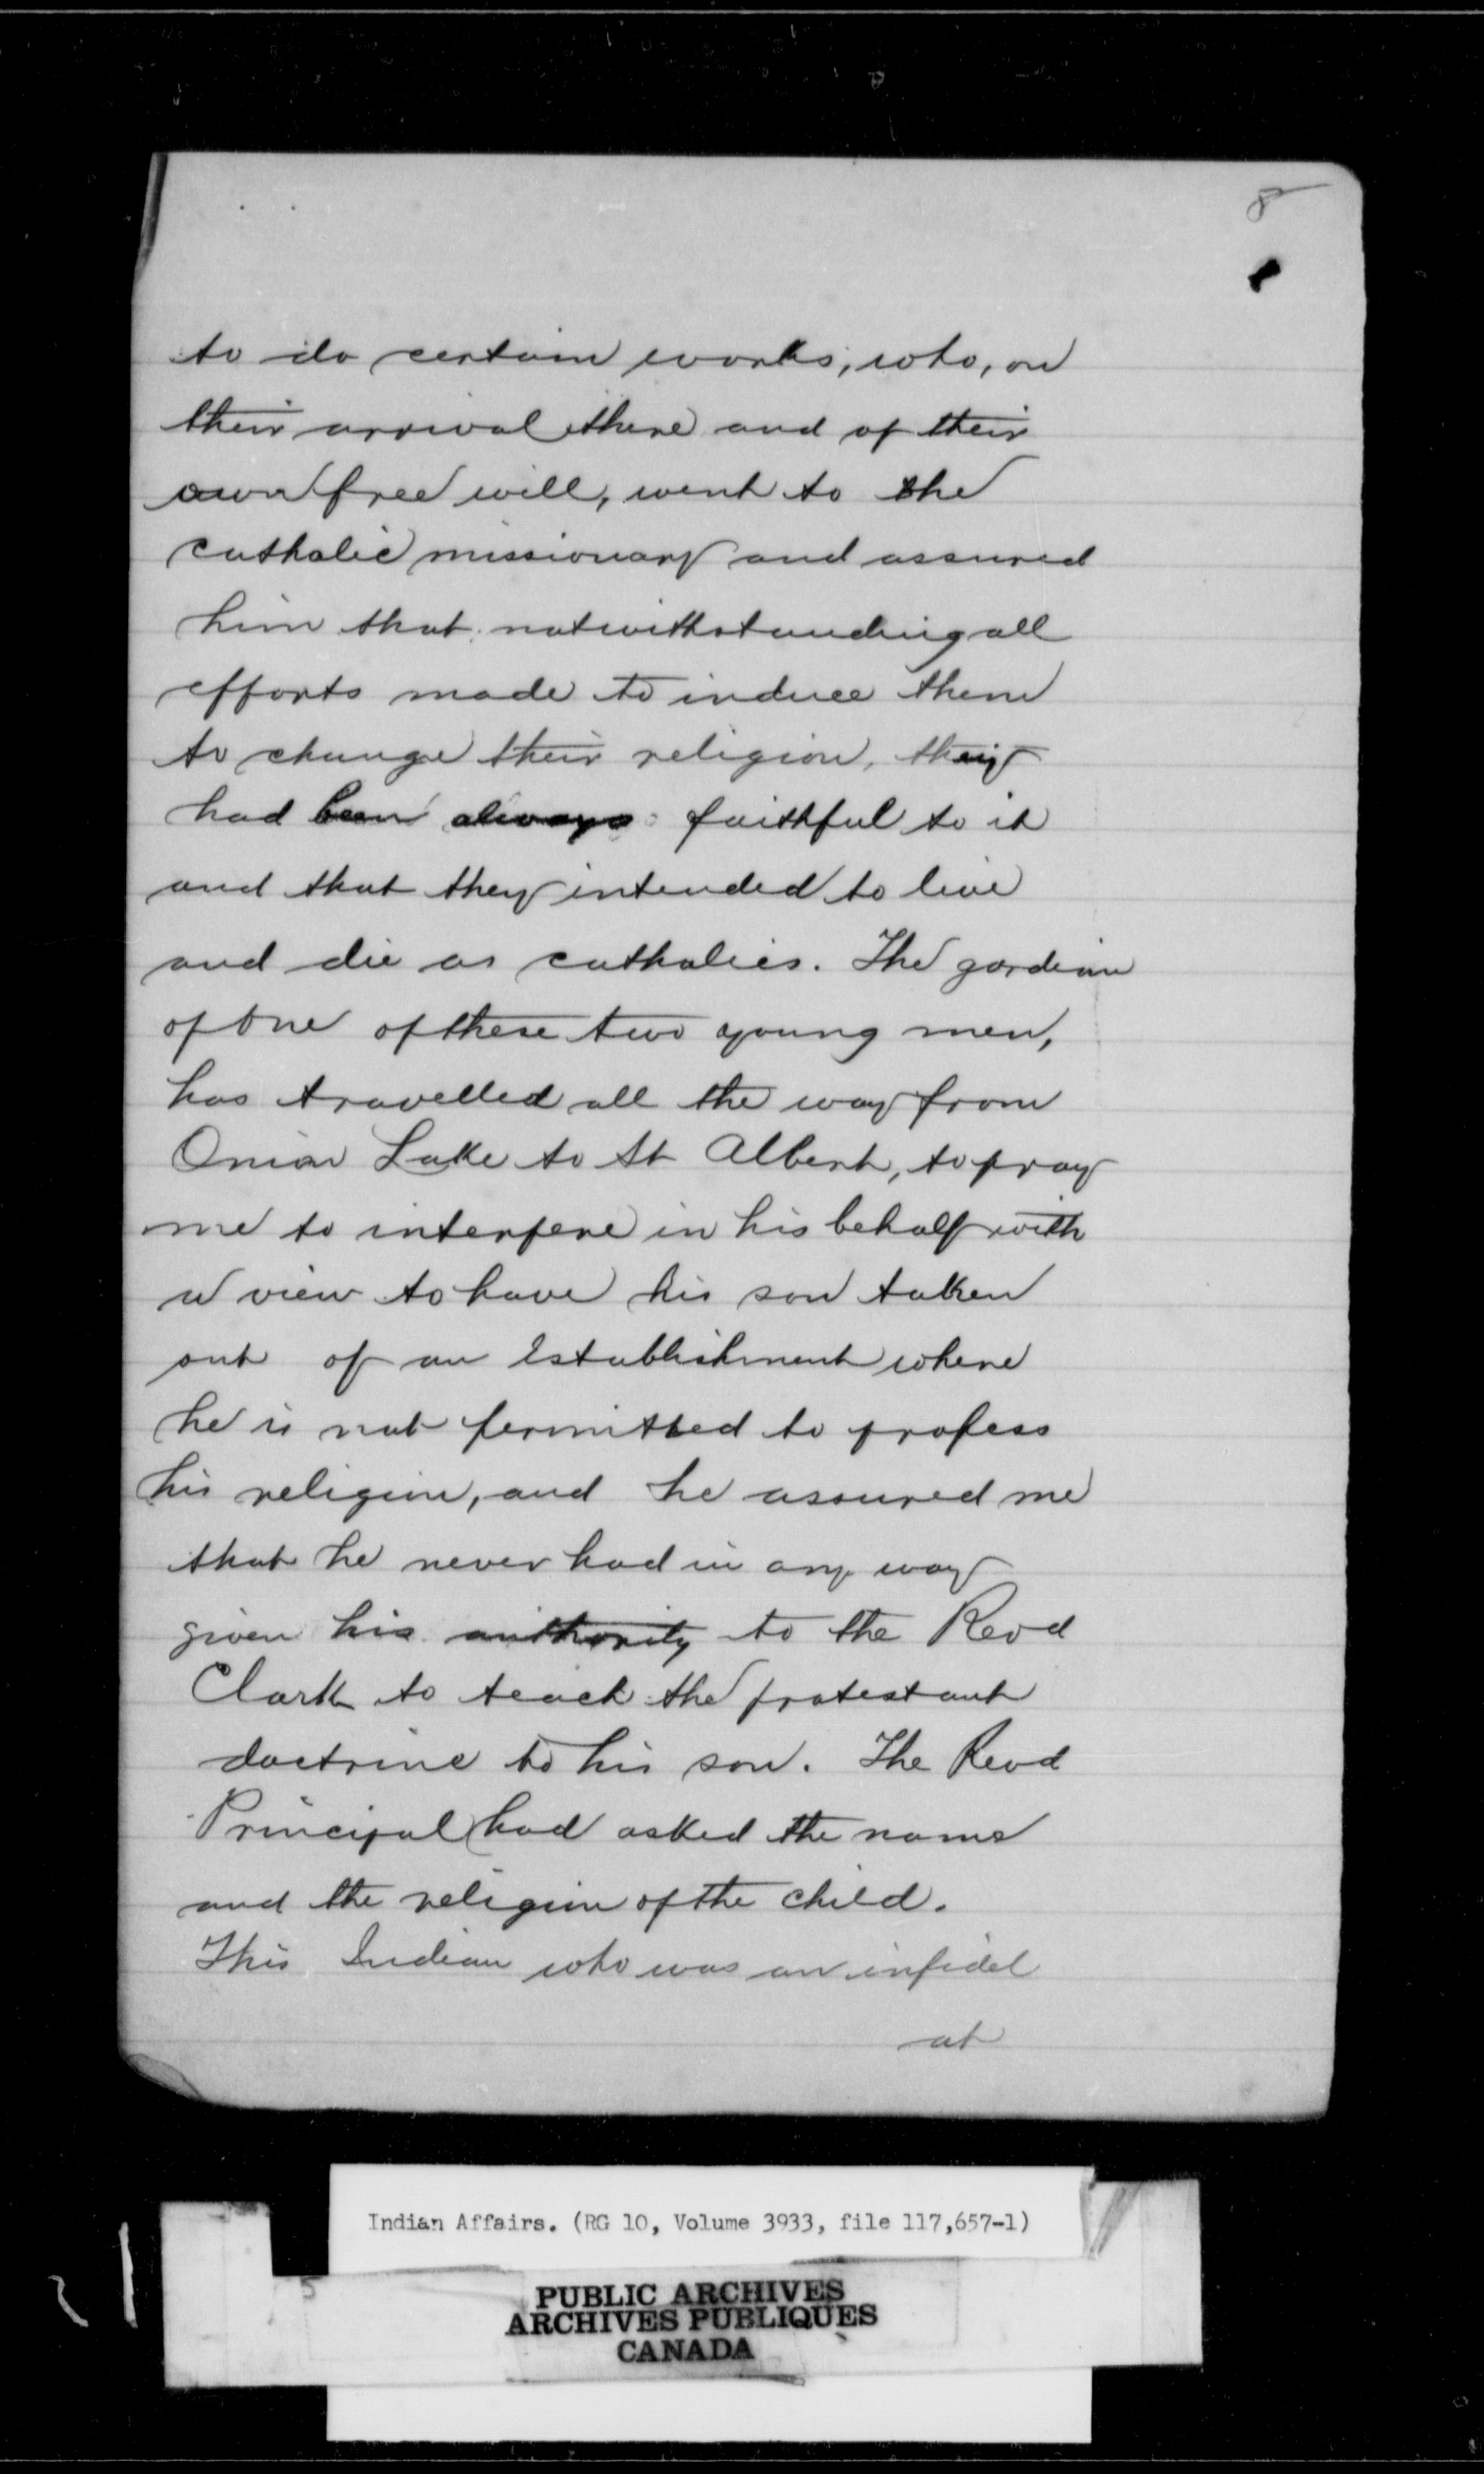 8
to do certain works, who, on
their arrival there and of their
own free will, went to the
catholic missionary and assured
him that notwithstanding all
efforts made to induce them
to change their religion, they
had been always faithful to it
and that they intended to live
and die as catholics. The gardian
of one of these two young men,
has travelled all the way from
Onion Lake to St Albert, to pray
me to interfere in his behalf with
a view to have his son taken
out of an Establishment where
he is not permitted to profess
his religion, and he assured me
that he never had in any way
given his authority to the Revd
Clark to teach the protestant
doctrine to his son. The Revd
Principal had asked the name
and the religion of the child.
This Indian who was an infidel
at
Indian Affairs. (RG 10, Volume 3933, file 117,657-1)
PUBLIC ARCHIVES
ARCHIVES PUBLIQUES
CANADA